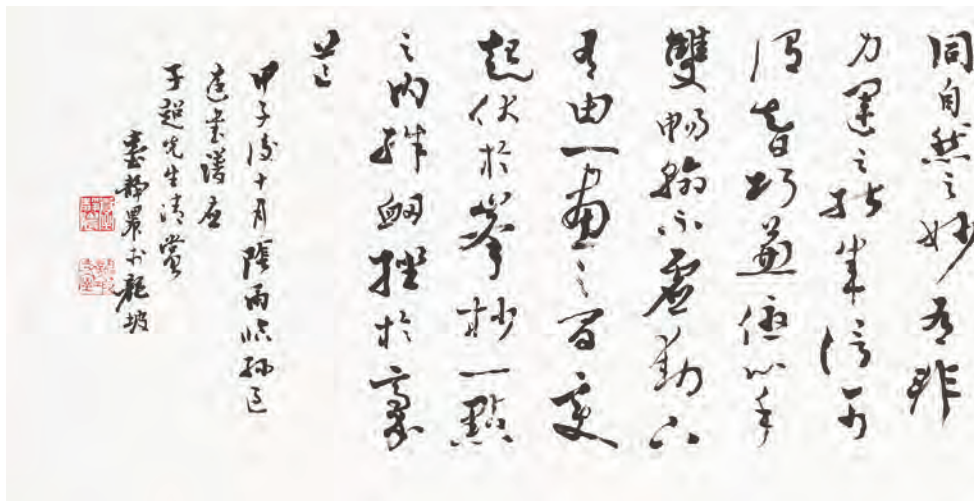 同自然之妙有非
力運之能成信可
謂智巧兼優心手
雙暢翰不虛動下
有由一畫之間變
起伏於峯杪一點
之內殊衄挫於豪
芒
甲子後十月陰雨臨孫過
庭書譜應
子超先生清賞
臺靜農於龍坡